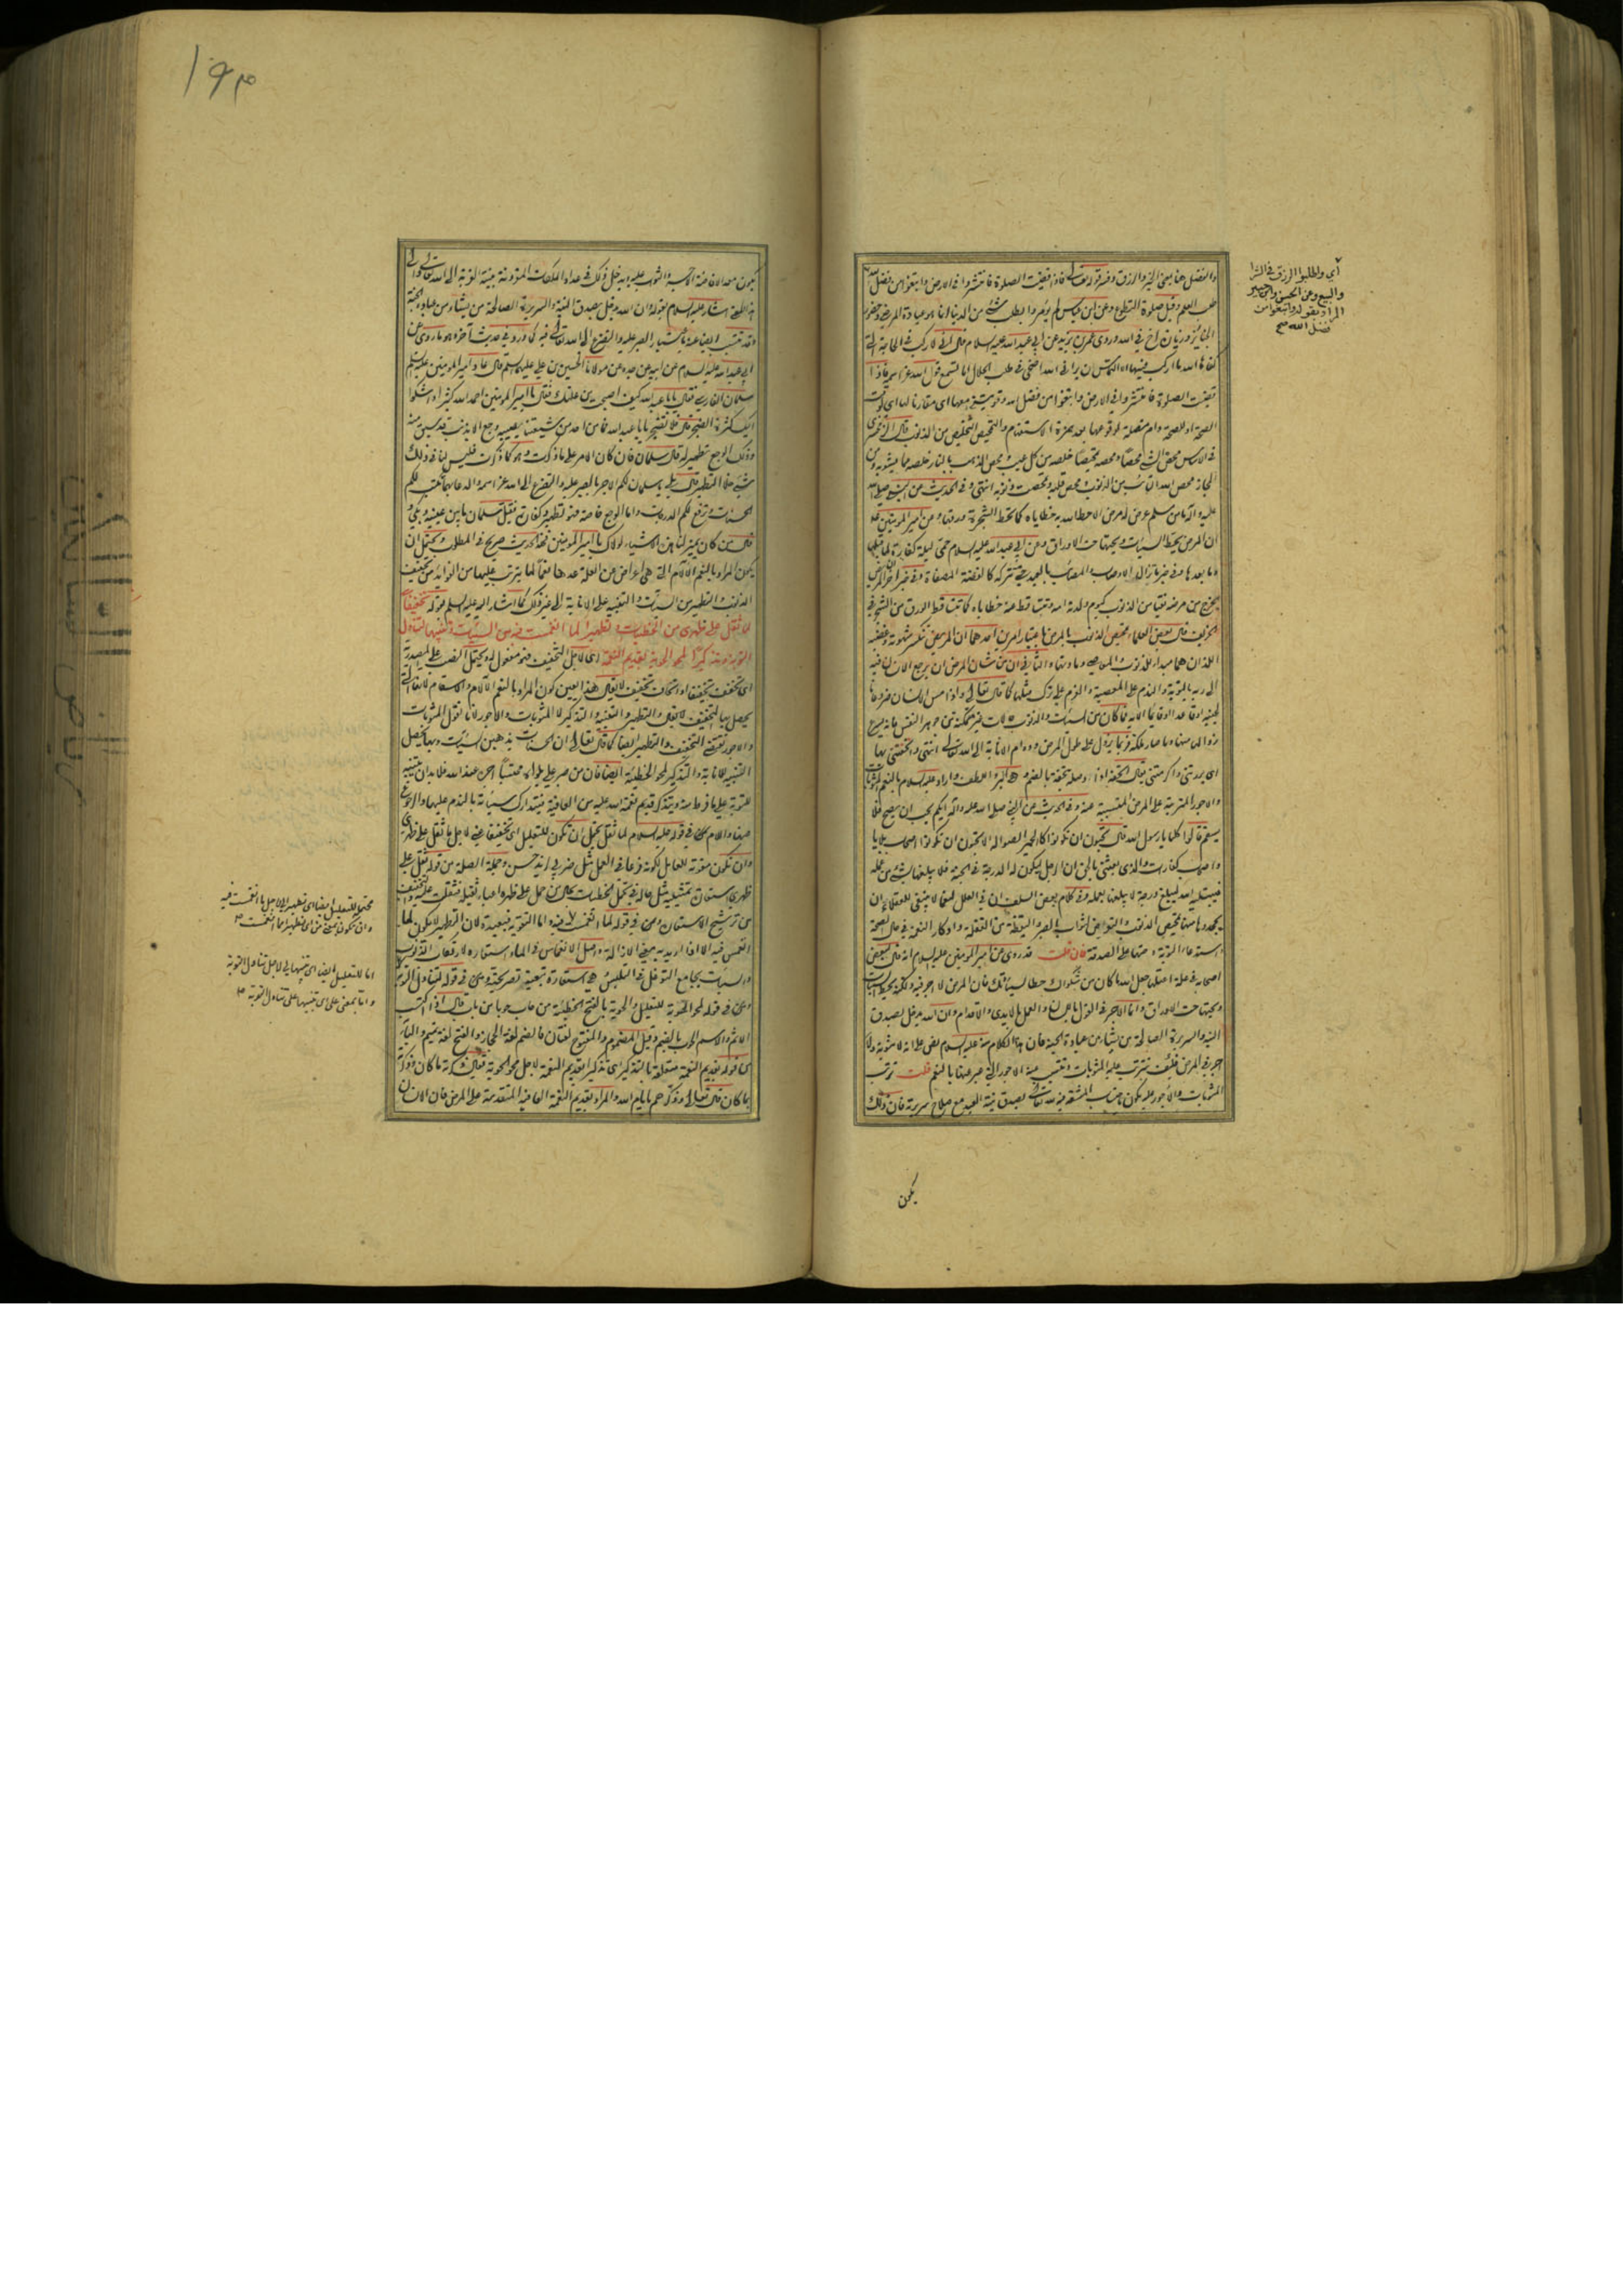 والفضل هنا بمعنى الخير والرزق وفسر قوله تعالى فاذا قضيت الصلوة فانتشروا فى الارض وابتغوا من فضل الله
طلب العلم وقيل صلوة التطوع وعن ابن عباس لم يؤمروا بطلب شئ من الدنيا انما هو عيادة المرضى وحضور
الجنائز وزيارة اخ فى الله وروى عمر بن يزيد عن ابى عبد الله عليه السلام قال انى لاركب فى الحاجة التى
كفاها الله ما اركب فيها الا التماس ان يرانى الله اضحى فى طلب الحلال اما تسمع قول الله عز اسمه فاذا
قضيت الصلوة فانتشروا فى الارض وابتغوا من فضل الله وقويتنى معها اى مقارنا لها اى لوقت
الصحة او للصحة وام متصلة لوقوعها بعد همزة الاستفهام والتمحيص التخليص من الذنوب قال الزمخشرى
فى الاساس محص الشئ محصا ومحصه تمحيصا خلصه من كل عيب ومحص الذهب بالنار خلصه مما يشوبه ومن
المجاز محص الله التائب من الذنوب ومحص قلبه وتمحصت ذنوبه انتهى وفى الحديث عن النبى صلى الله
عليه واله ما من مسلم مرض الا حط الله به خطاياه كما تحط الشجرة ورقها وعن امير المؤمنين عليه
ان المرض يحط السيئات ويحتها حت الاوراق وعن ابى عبد الله عليه السلام حمى ليلة كفارة لما قبلها
وما بعدها وفى خبر ما تزال الاوصاب والمصائب بالعبد حتى تتركه كالفضة المصفاة وفى خبر اخر المريض
يخرج من مرضه نقيا من الذنوب كيوم ولدته امه وتتساقط عنه خطاياه كما تتساقط الورق من الشجر فى
الخريف قال بعض العلماء تمحيص الذنوب بالمرض باعتبار امرين احدهما ان المريض تنكسر شهوته وغضبه
اللذان هما مبدأ للذنوب والمعاصى ومادتها والثانى ان من شان المرض ان يرجع الانسان فيه
الى ربه بالتوبة والندم على المعصية والعزم على ترك مثلها كما قال تعالى واذا مس الانسان ضر دعانا
لجنبه او قاعدا او قائما الاية فما كان من السيئات والذنوب حالات غير متمكنة من جوهر النفس فانه يسرع
زوالها منها وما صار ملكة فربما يزول على طول المرض ودوام الانابة الى الله تعالى انتهى واتحفتنى بها
اى بررتنى واكرمتنى يقال اتحفه بكذا وصله تحفة بالضم وهى البر واللطف واراد عليه السلام بالنعم المثوبات
والاجور المترتبة على المرض المسببة عنه وفى الحديث عن النبى صلى الله عليه واله ايكم يحب ان يصح فلا
يسقم قالوا كلنا يا رسول الله قال تحبون ان تكونوا كالحمير الصوالة الا تحبون ان تكونوا اصحاب بلايا
واصحاب كفارات والذى بعثنى بالحق ان الرجل ليكون له الدرجة فى الجنة فلا يبلغها بشئ من عمله
فيبتليه الله ليبلغ درجة لا يبلغها بعمله وفى كلام بعض السلف ان فى العلل لنعما لا ينبغى للعقلاء ان
يجحدوها منها تمحيص الذنوب والتعرض لثواب الصبر واليقظة من الغفلة وادكار النعمة فى حال الصحة
واستدعاء التوبة وحثها على الصدقة فان قلت قد روى عن امير المؤمنين عليه السلام انه قال لبعض
اصحابه فى علة اعتلها جعل الله ما كان من شكواك حطا لسيئاتك فان المرض لا اجر فيه ولكنه يحط السيئات
ويحتها حت الاوراق وانما الاجر فى القول باللسان والعمل بالايدى والاقدام وان الله يدخل بصدق
النية والسريرة الصالحة من يشاء من عباده الجنة فان هذا الكلام منه عليه السلام نص على انه لا مثوبة ولا
اجر فى المرض فكيف تترتب عليه المثوبات وتتسبب عنه الاجور التى عبر عنها بالنعم قلت ترتب
المثوبات والاجور عليه يكون باحتساب المشقة فيه لله تعالى بصدق نية العبد مع صلاح سريرته فان ذلك
يكون
اى واطلبوا الرزق فى الشرا
والبيع وعن الحسن وابن جبير
المراد بقوله وابتغوا من
فضل الله صح
١٩٣
يكون معدا لافاضة الاجر والثواب عليه ويدخل ذلك فى عداد الملكات المقرونة بنية القربة الى الله تعالى والى
هذا المعنى اشار عليه السلام بقوله وان الله يدخل بصدق النية والسريرة الصالحة من يشاء من عباده الجنة
وقد تتسبب ايضا عنه باعتبار الصبر عليه والتضرع الى الله تعالى فيه كما ورد فى حديث آخر وهو ما روى عن
ابى عبد الله عليه السلام عن ابيه عن جده عن مولانا الحسين بن على عليهما السلم قال عاد امير المؤمنين عليه السلم
سلمان الفارسى فقال يا ابا عبد الله كيف اصبحت من علتك فقال يا امير المؤمنين احمد الله كثيرا واشكوا
اليك كثرة الضجر قال فلا تضجر يا ابا عبد الله فما من احد من شيعتنا يصيبه وجع الا بذنب قد سبق منه
وذلك الوجع تطهير له قال سلمان فان كان الامر على ما ذكرت وهو كما ذكرت فليس لنا فى ذلك
شئ خلا التطهير قال على يا سلمان لكم الاجر بالصبر عليه والتضرع الى الله عز اسمه والدعاء بهما تكتب لكم
الحسنات وترفع لكم الدرجات واما الوجع خاصة فهو تطهير وكفارة فقبل سلمان ما بين عينيه وبكى و
قال من كان يميز لنا هذه الاشياء لولاك يا امير المؤمنين فهذا الحديث صريح فى المطلوب ويحتمل ان
يكون المراد بالنعم الالام التى هى اعراض عن العلة عدها نعما لما يترتب عليها من الفوائد من تخفيف
الذنوب والتطهير من السيئات والتنبيه على الانابة الى غير ذلك كما اشار اليه عليه السلم بقوله تخفيفا
لما ثقل على ظهرى من الخطيئات وتطهيرا لما انغمست فيه من السيئات وتنبيها لتناول
التوبة وتذكيرا لمحو الحوبة بقديم النعمة اى لاجل التخفيف فهو مفعول له ويحتمل النصب على المصدرية
اى تخفف تخفيفا او اتحاف تخفيف لا يقال هذا يعين كون المراد بالنعم الالام والاسقام لانها التى
يحصل بها التخفيف لانا نقول والتطهير والتنبيه والتذكير لا المثوبات والاجور لانا نقول المثوبات
والاجور تقتضى التخفيف والتطهير ايضا كما قال تعالى ان الحسنات يذهبن السيئات وبها يحصل
التنبيه للانابة والتذكير لمحو الخطيئة ايضا فان من صبر على بلواه محتسبا اجره عند الله فلا بد ان يتنبه
للتوبة على ما فرط منه ويتذكر قديم نعمة الله عليه من العافية فيتدارك سيئاته بالندم عليها والرجوع
عنها واللام فى قوله عليه السلام لما ثقل يحتمل ان تكون للتعليل اى تخفيفا عنى لاجل ما ثقل على ظهرى
وان تكون مقوية للعامل لكونه فرعا فى العمل مثل ضربى لزيد حسن وجملة الصلة من قوله ثقل على
ظهرى استعارة تمثيلية مثل حاله فى تحمل الخطيئات بحال من حمل على ظهره اعباء ثقيلة فثقلت عليه والتخفيف
ترشيح للاستعارة واللام فى قوله لما انغمست فيه اما التقوية فبعيدة لان التطهير لا يكون لما
انغمس فيه الا اذا اريد به معنى الازالة واصل الانغماس فى الماء استعاره لارتكاب الذنوب
والسيئات بجامع التوغل فى التلبس فهى استعارة تبعية تصريحية واللام فى قوله لتناول التوبة
وفى قوله لمحو الحوبة للتعليل والحوبة بالفتح الخطيئة من حاب حوبا من باب قال اذا اكتسب
الاثم والاسم الحوب بالضم وقيل المضموم والمفتوح لغتان فالضم لغة الحجاز والفتح لغة تميم والباء
فى قوله بقديم النعمة متعلقة بالتذكير اى تذكيرا بقديم النعمة لاجل محو الحوبة يقال ذكرته ما كان وذكرته
بما كان قال تعالى وذكرهم بايام الله والمراد بقديم النعمة العافية المتقدمة على المرض فان الانسان
محتملة للتعليل ايضا اى تطهيرا لاجل ما انغمست فيه
وان تكون بمعنى من اى تطهيرا مما انغمست ٣
اما للتعليل ايضا اى تنبيها لى لاجل تناول التوبة
واما بمعنى على اى تنبيها على تناول التوبة ٣